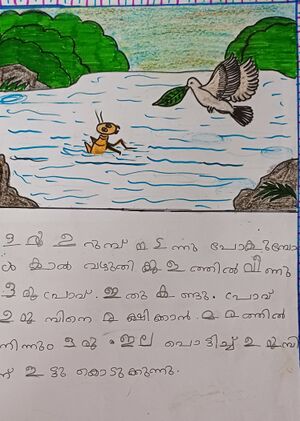 ഒരു ഉറുമ്പ് നടന്നു പോകുമ്പോ
ൾ കാൽ വഴുതി കുളത്തിൽ വീണു
ഒരു പ്രാവ്. ഇതു കണ്ടു. പ്രാവ്
ഉറുമ്പിനെ രക്ഷിക്കാൻ. മരത്തിൽ
നിന്നും ഒരു ഇല പൊട്ടിച്ച് ഉറുമ്പി
ന് ഇട്ടു കൊടുക്കുന്നു.